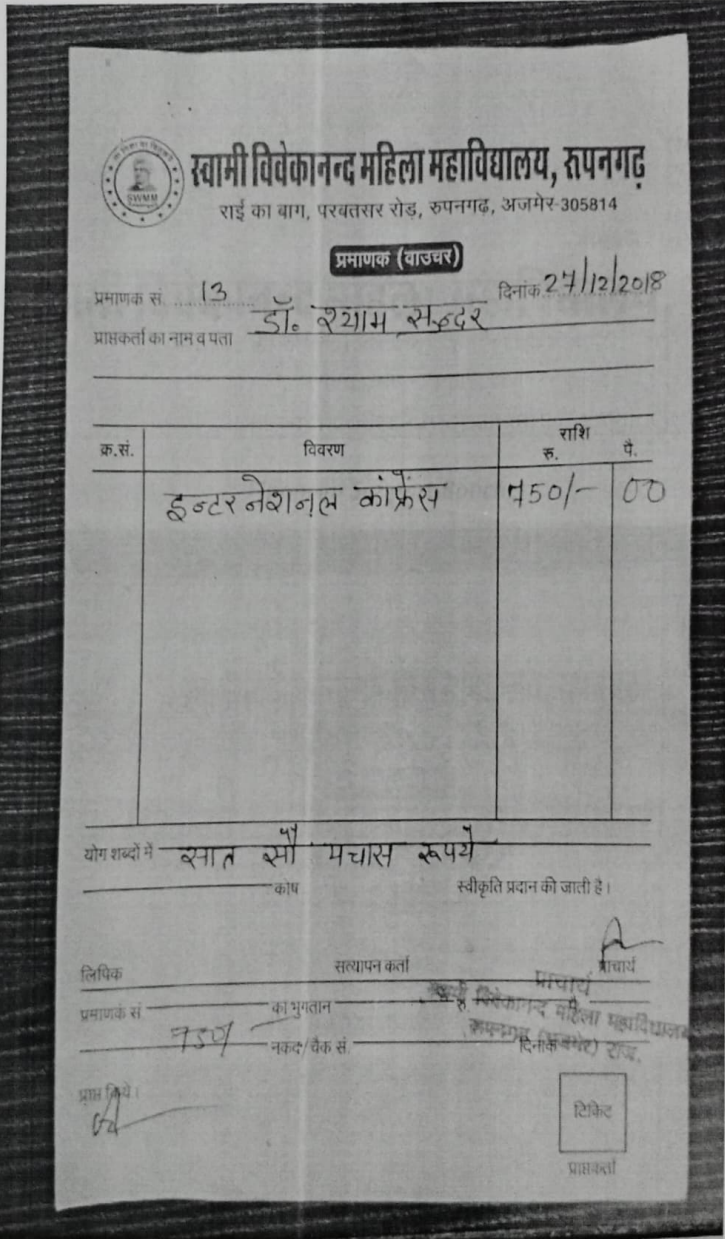 SWMM
स्वामी विवेकानन्द महिला महाविद्यालय, रूपनगढ़
राई का बाग, परबतसर रोड़, रुपनगढ़, अजमेर-305814
प्रमाणक (वाउचर)
प्रमाणक सं. 13 दिनांक 27/12/2018
प्राप्तकर्ता का नाम व पता डॉ. श्याम सुन्दर
क्र.सं. विवरण राशि
रु. पै.
इन्टरनेशनल कांफ्रेंस 750/- 00
योग शब्दों में सात सौ पचास रूपये
कोष स्वीकृति प्रदान की जाती है।
लिपिक सत्यापन कर्ता प्राचार्य
प्राचार्य
प्रमाणक सं का भुगतान रु. पै.
स्वामी विवेकानन्द महिला महाविद्यालय
रूपनगढ़ (अजमेर) राज.
750/- नकद/चैक सं. दिनांक
प्राप्त किये।
टिकिट
प्राप्तकर्ता